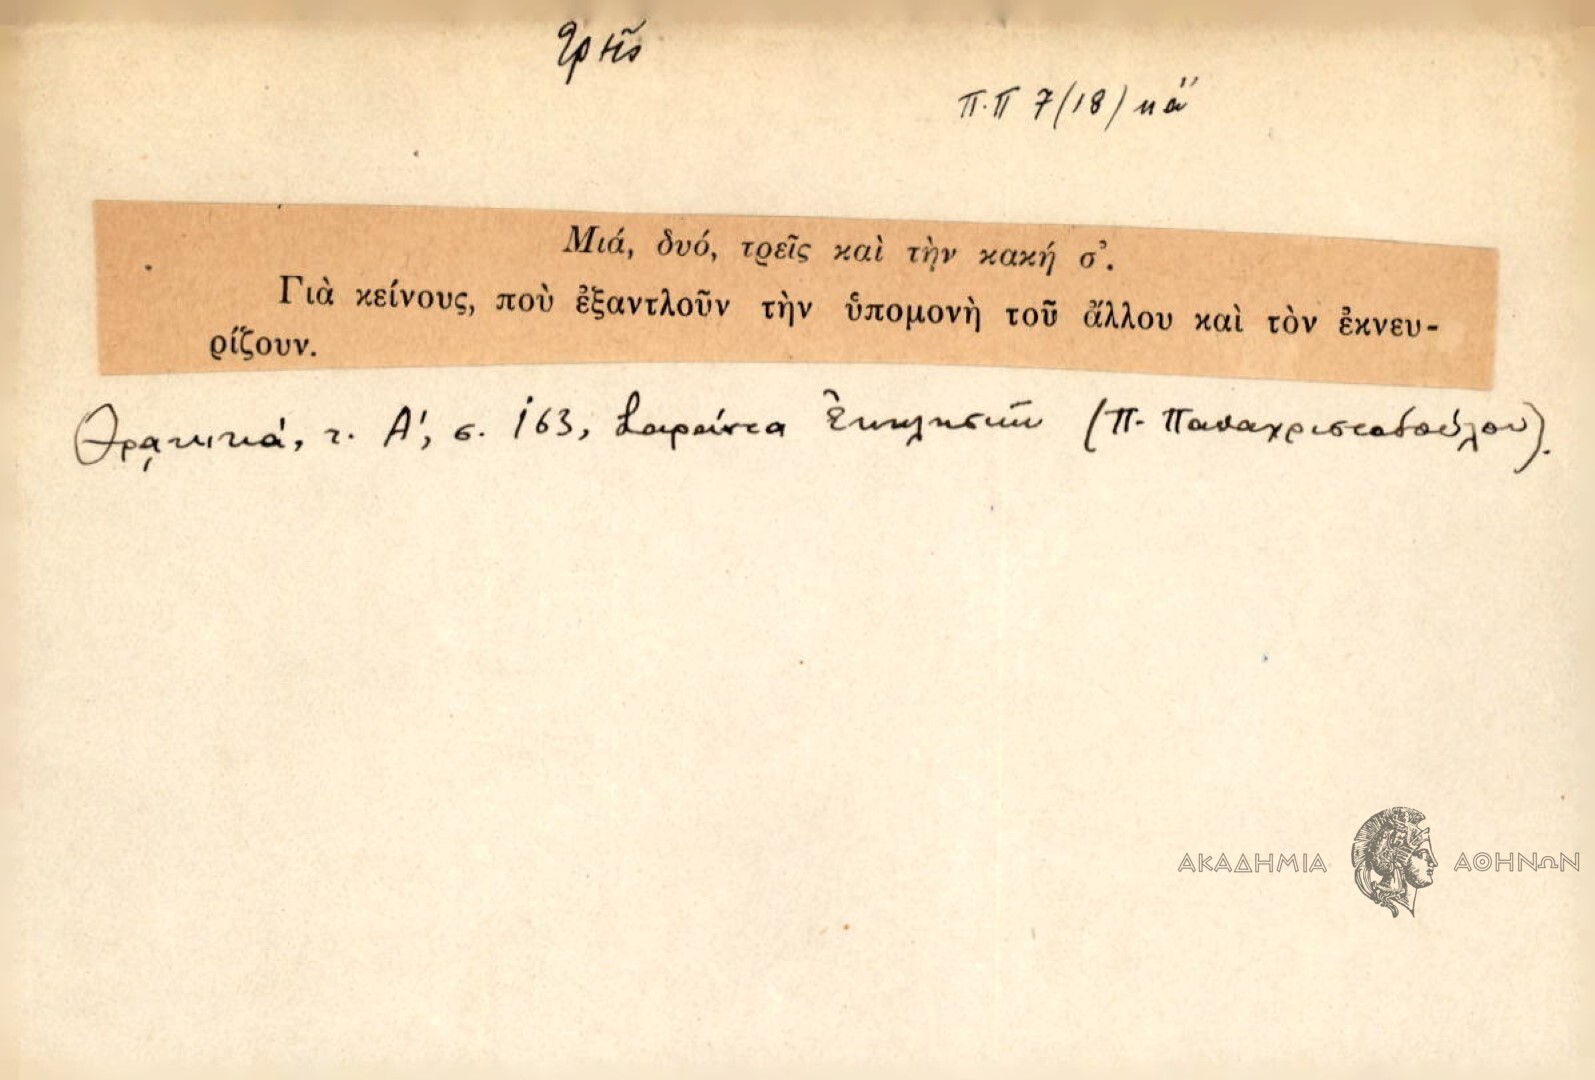 τρεῖς
Π.Π 7(18) κά
Μιά, δυό, τρεῖς καὶ τὴν κακή σ᾽.
Γιὰ κείνους, ποὺ ἐξαντλοῦν τὴν ὑπομονὴ τοῦ ἄλλου καὶ τὸν ἐκνευ-
ρίζουν.
Θρᾳκικά, τ. Α', σ. 163, Σαράντα Ἐκκλησιῶν (Π. Παπαχριστοδούλου).
ΑΚΑΔΗΜΙΑ ΑΘΗΝΩΝ